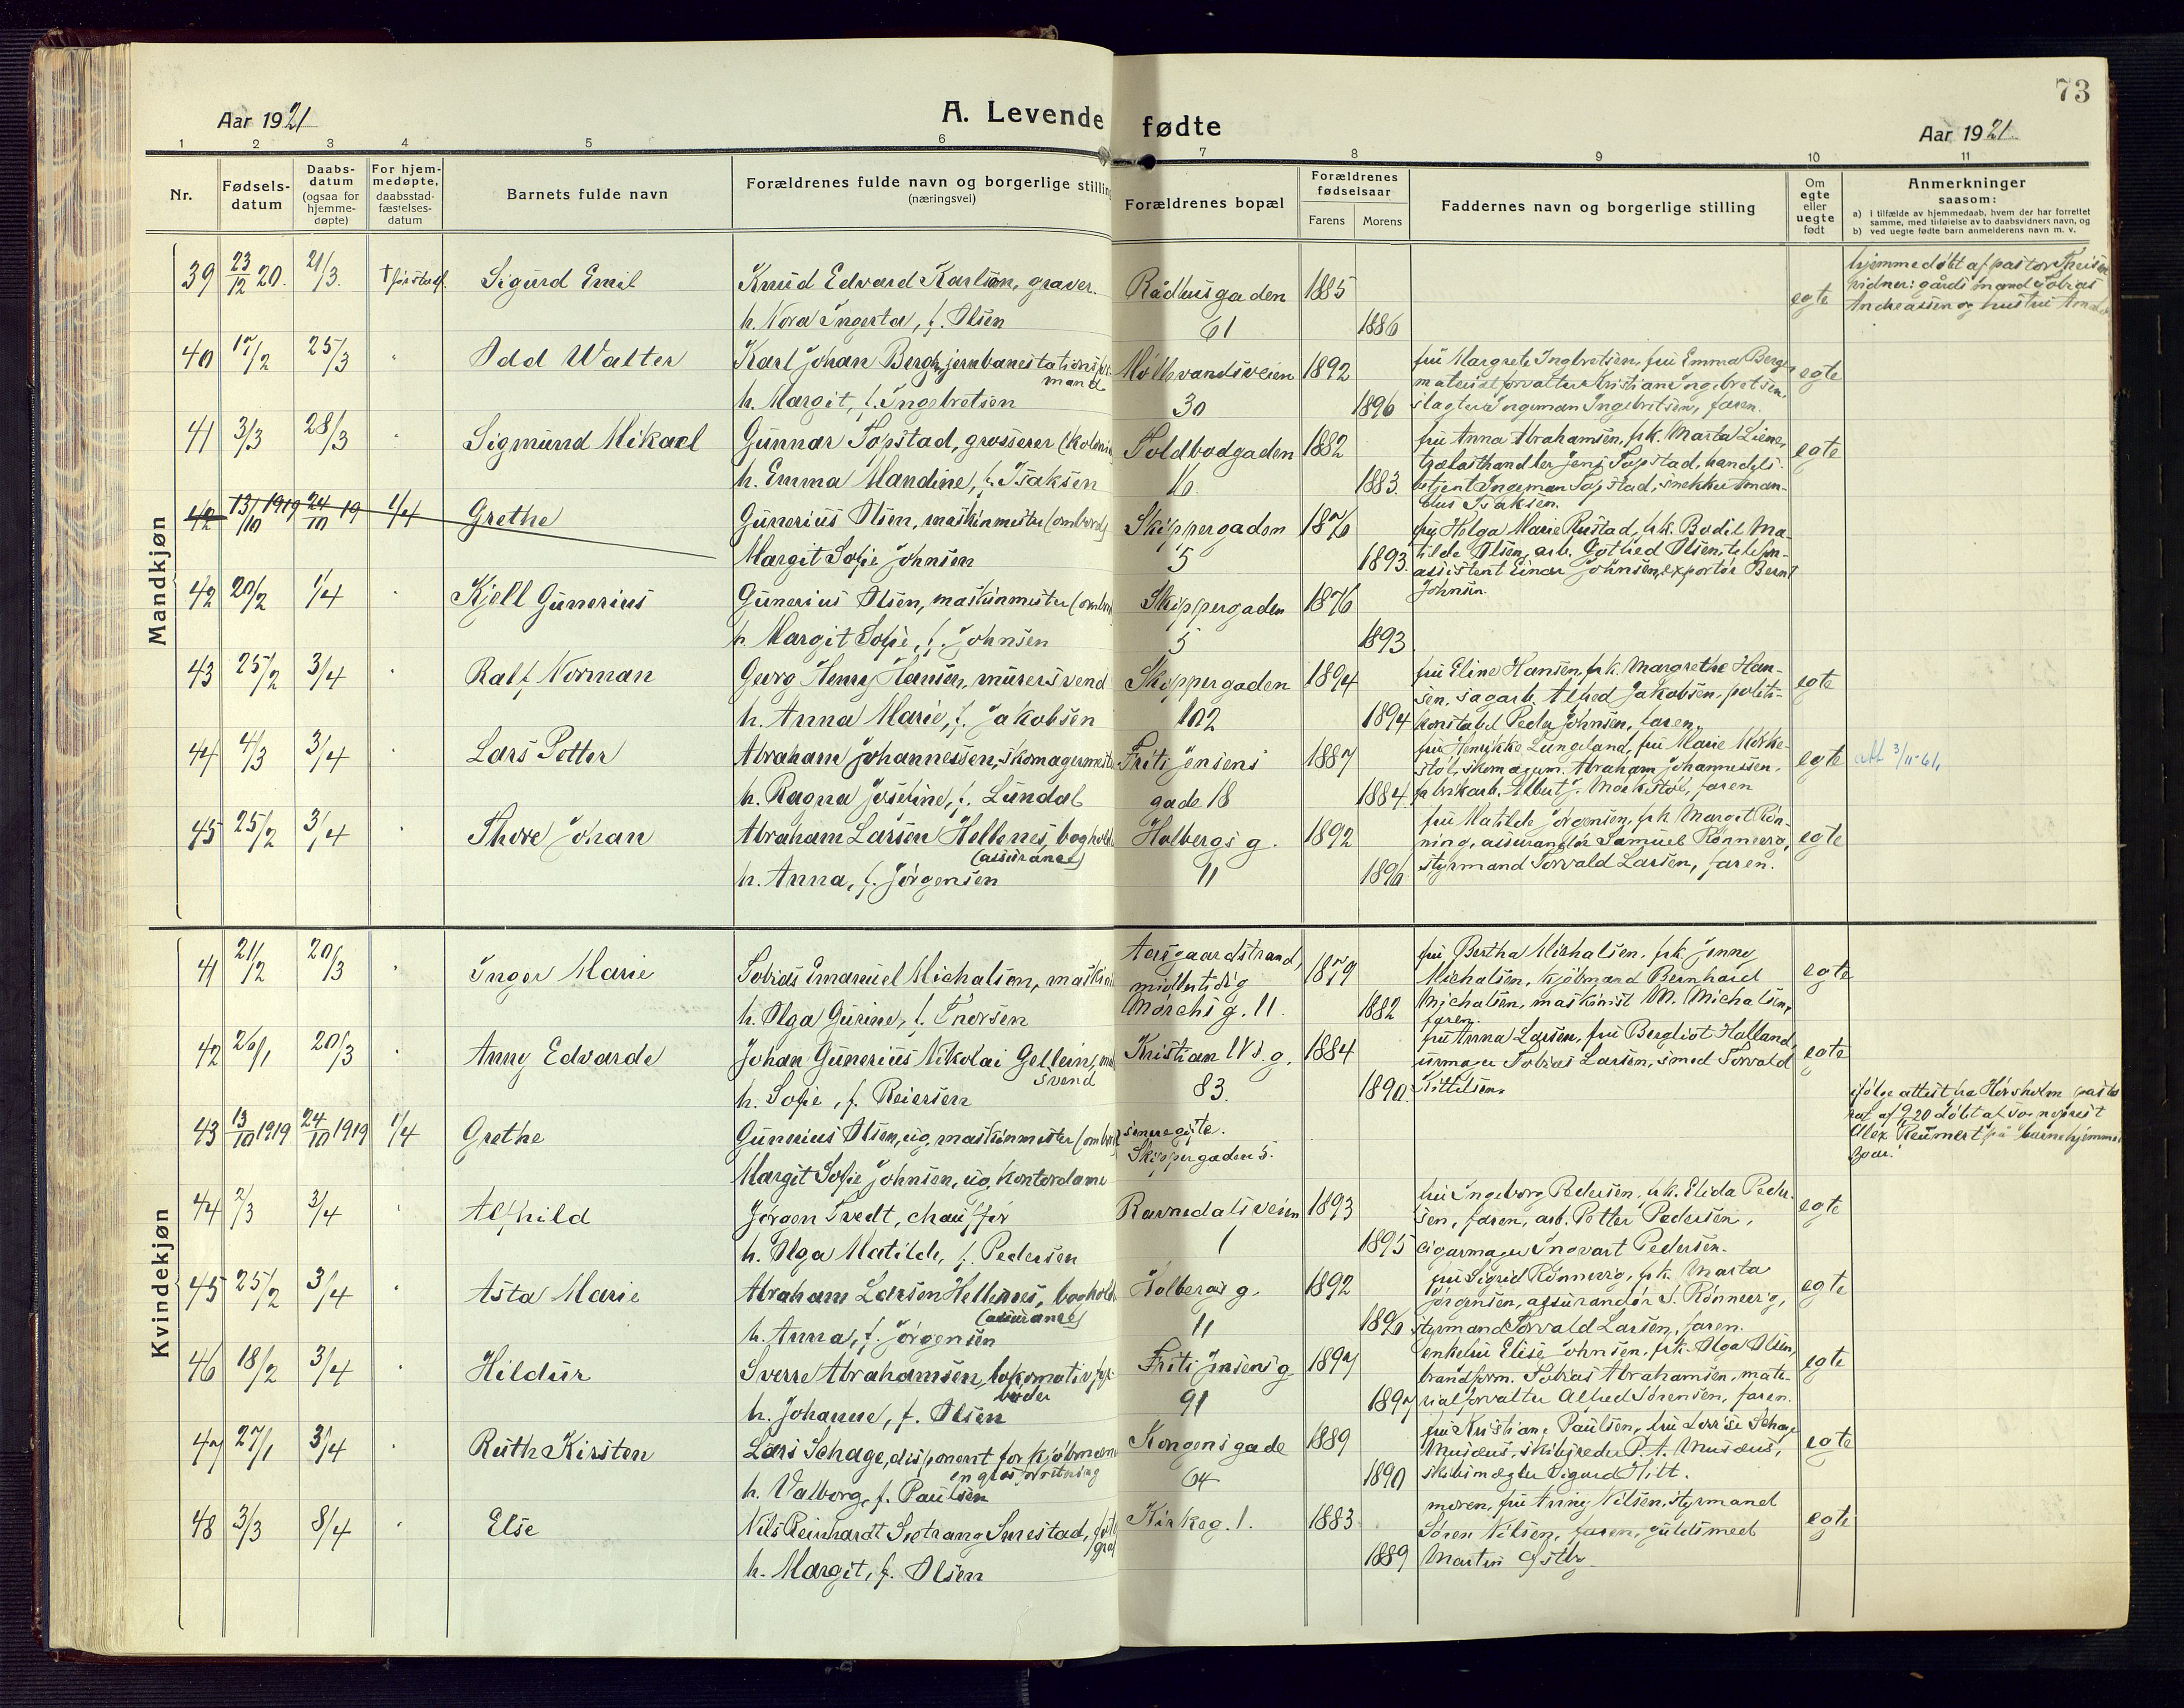 73
Aar 1921
A. Levende fødte
Aar 1921
1 2 3 4 5 6 7 8 9 10 11
Nr.
Fødsels-
datum
Daabs-
datum
(ogsaa for
hjemme-
døpte)
For hjem-
medøpte,
daabsstad-
fæstelses-
datum
Barnets fulde navn
Forældrenes fulde navn og borgerlige stilling
(næringsvei)
Forældrenes bopæl
Forældrenes
fødselsaar
Farens Morens
Faddernes navn og borgerlige stilling
Om
egte
eller
uegte
født
Anmerkninger
saasom:
a) i tilfælde av hjemmedaab, hvem der har forrettet
samme, med tilføielse av to daabsvidners navn, og
b) ved uegte fødte barn anmelderens navn m. v.
Mandkjøn
39 23/12 20. 21/3. Sigurd Emil Knud Edvard Karlsen, graver. Rådhusgaden 1885 egte
hjemmedøbt af pastor
vidner: gårdsmand Tobias
Andreassen og hustru
h. Nora Ingerta, f. Olsen 61 1886
40 17/2 25/3 " Odd Walter Karl Johan Bergh, jernbanestationsfor-
mand
30 1892 egte
fru Margrete Ingbretsen, fru Emma Bergh,
materialforvalter Kristian Ingebretsen,
slagter Ingeman Ingebretsen, faren.
h. Margit, f. Ingebretsen 1896
41 3/3 28/3 " Sigmund Mikael Gunnar Topstad, grosserer (kolonial Toldbodgaden 1882 egte
fru Anna Abrahamsen, frk. Marta Liene,
trælasthandler Jens Topstad, handels-
betjent Ingeman Topstad, snekker Aman-
dus Isaksen.
h. Emma Mandine, f. Isaksen 16. 1883.
42 13/10 1919 24/10 19 1/4 Grethe Gunerius Olsen, maskinmester (ombord) Skippergaden 1876
fru Helga Marie Rustad, frk. Bodil Ma-
tilde Olsen, arb. Gothed Olsen, telefon-
assistent Einar Johnsen, exportør Bernt
Johnsen.
Margit Sofie Johnsen 5 1893.
42 20/2 1/4 Kjell Gunerius Gunerius Olsen, maskinmester (ombord Skippergaden 1876
h. Margit Sofie, f. Johnsen 5 1893.
43 25/2 3/4 " Ralf Norman Georg Henry Hansen, murersvend Skippergaden 1894 egte
fru Eline Hansen, frk. Margrethe Han-
sen, sagarb. Alfred Jakobsen, politi-
konstabel Peder Johnsen, faren.
h. Anna Marie, f. Jakobsen 102 1894
44 4/3 3/4 " Lars Petter Abraham Johannessen, skomagermester Fritz Jensens 1887 egte att 3/11-61.
fru Henrikke Lungeland, fru Marie Mørke-
støl, skomagerm. Abraham Johannessen,
fabrikarb. Albert J. Mørkestøl, faren
h. Ragna Josefine, f. Lundal gade 18 1884
45 25/2 3/4 " Thore Johan Abraham Larsen Hellenes, bogholder
(assurance)
Holbergs g. 1892 egte
fru Matilde Jørgensen, frk. Margit Røn-
ning, assurandør Samuel Rønnevig,
styrmand Torvald Larsen, faren.
h. Anna, f. Jørgensen 11 1896
Kvindekjøn
41 21/2 20/3 " Inger Marie Tobias Emanuel Michalsen, maskin
Aasgaardstrand,
midlertidig
Mørchs g. 11. 1879 egte
fru Bertha Michalsen, frk. Jenny
Michalsen, kjøbmand Bernhard
Michalsen, maskinist M. Michalsen,
faren.
h. Olga Gurine, f. Thorsen 1882
42 26/1 20/3 " Anny Edvarde Johan Gunerius Nikolai Gellein,
svend
Kristian IVs. g. 1884 egte
fru Anna Larsen, fru Bergliot Halland,
urmager Tobias Larsen, smed Torvald
Kittelsen.
h. Sofie, f. Reiersen 83. 1890.
43 13/10 1919 24/10 1919 1/4 Grethe Gunerius Olsen, ug. maskinmester (ombord) senere gifte.
Skippergaden 5.
ifølge attest fra Hørsholm pasto
rat af 9/9 20 døbt af sognepræst
Alex Reumert på børnehjemmet
Zoar.
Margit Sofie Johnsen, ug. kontordame
44 7/3 3/4 " Alfhild Jørgen Tvedt, chauffør Ravnedalsveien 1893 egte
fru Ingeborg Pedersen, frk. Elida Peder-
sen, faren, arb. Petter Pedersen,
cigarmager Ingvart Pedersen.
h. Olga Matilde, f. Pedersen 1 1895
45 25/2 3/4 " Asta Marie Abraham Larsen Hellenes, boghold
(assurance)
Holbergs g. 1892 egte
fru Sigrid Rønnevig, frk. Marta
Jørgensen, assurandør S. Rønnevig,
styrmand Torvald Larsen, faren.
h. Anna, f. Jørgensen 11 1896
46 18/2 3/4 " Hildur Sverre Abrahamsen, lokomotivfyr-
bøder
Fritz Jensens g. 1897 egte
enkefru Elise Johnsen, frk. Olga Olsen,
brandform. Tobias Abrahamsen, mate-
rialforvalter Alfred Sørensen, faren.
h. Johanne, f. Olsen 91 1897
47 27/1 3/4 " Ruth Kirsten Lars Schage, disponent for kjøbmænd
engros forretning
Kongens gade 1889 egte
fru Kristiane Paulsen, fru Lovise Schage
Musæus, skibsreder P. A. Musæus,
skibsmægler Sigurd Hitt.
h. Valborg, f. Paulsen 64 1890
48 3/3 8/4 " Else Nils Reinhardt Sætrang Smestad, foto
graf
Kirkeg. 1. 1883 egte
moren, fru Anny Nilsen, styrmand
Søren Nilsen, faren, guldsmed
Martin Østby.
h. Margit, f. Olsen 1889